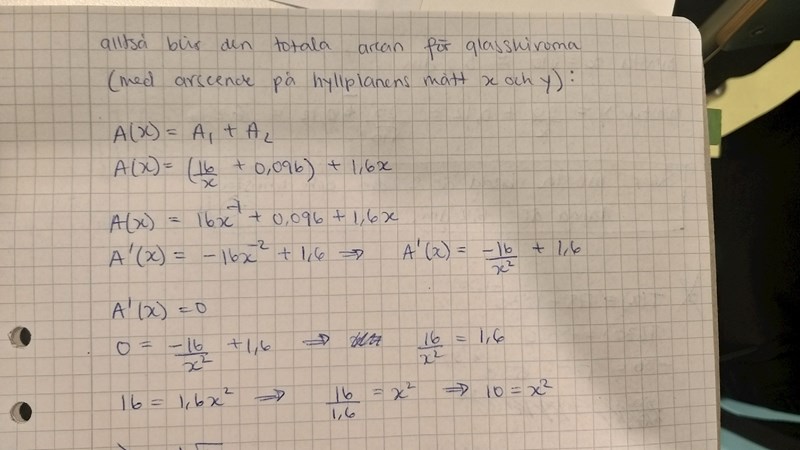 alltså blir den totala arean för glasskivorna
(med avseende på hyllplanens mått x och y):
A(x) = A₁ + A₂
A(x) = (16/x + 0,096) + 1,6x
A(x) = 16x⁻¹ + 0,096 + 1,6x
A'(x) = -16x⁻² + 1,6 ⇒ A'(x) = -16/x² + 1,6
A'(x) = 0
0 = -16/x² + 1,6 ⇒ 16/x² = 1,6
16 = 1,6x² ⇒ 16/1,6 = x² ⇒ 10 = x²